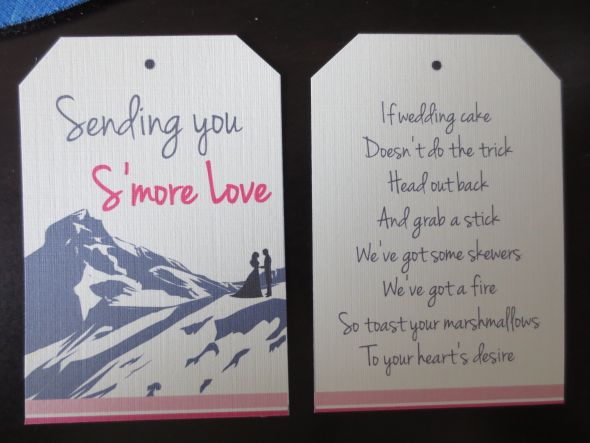 Sending you
S'more Love
If wedding cake
Doesn't do the trick
Head out back
And grab a stick
We've got some skewers
We've got a fire
So toast your marshmallows
To your heart's desire